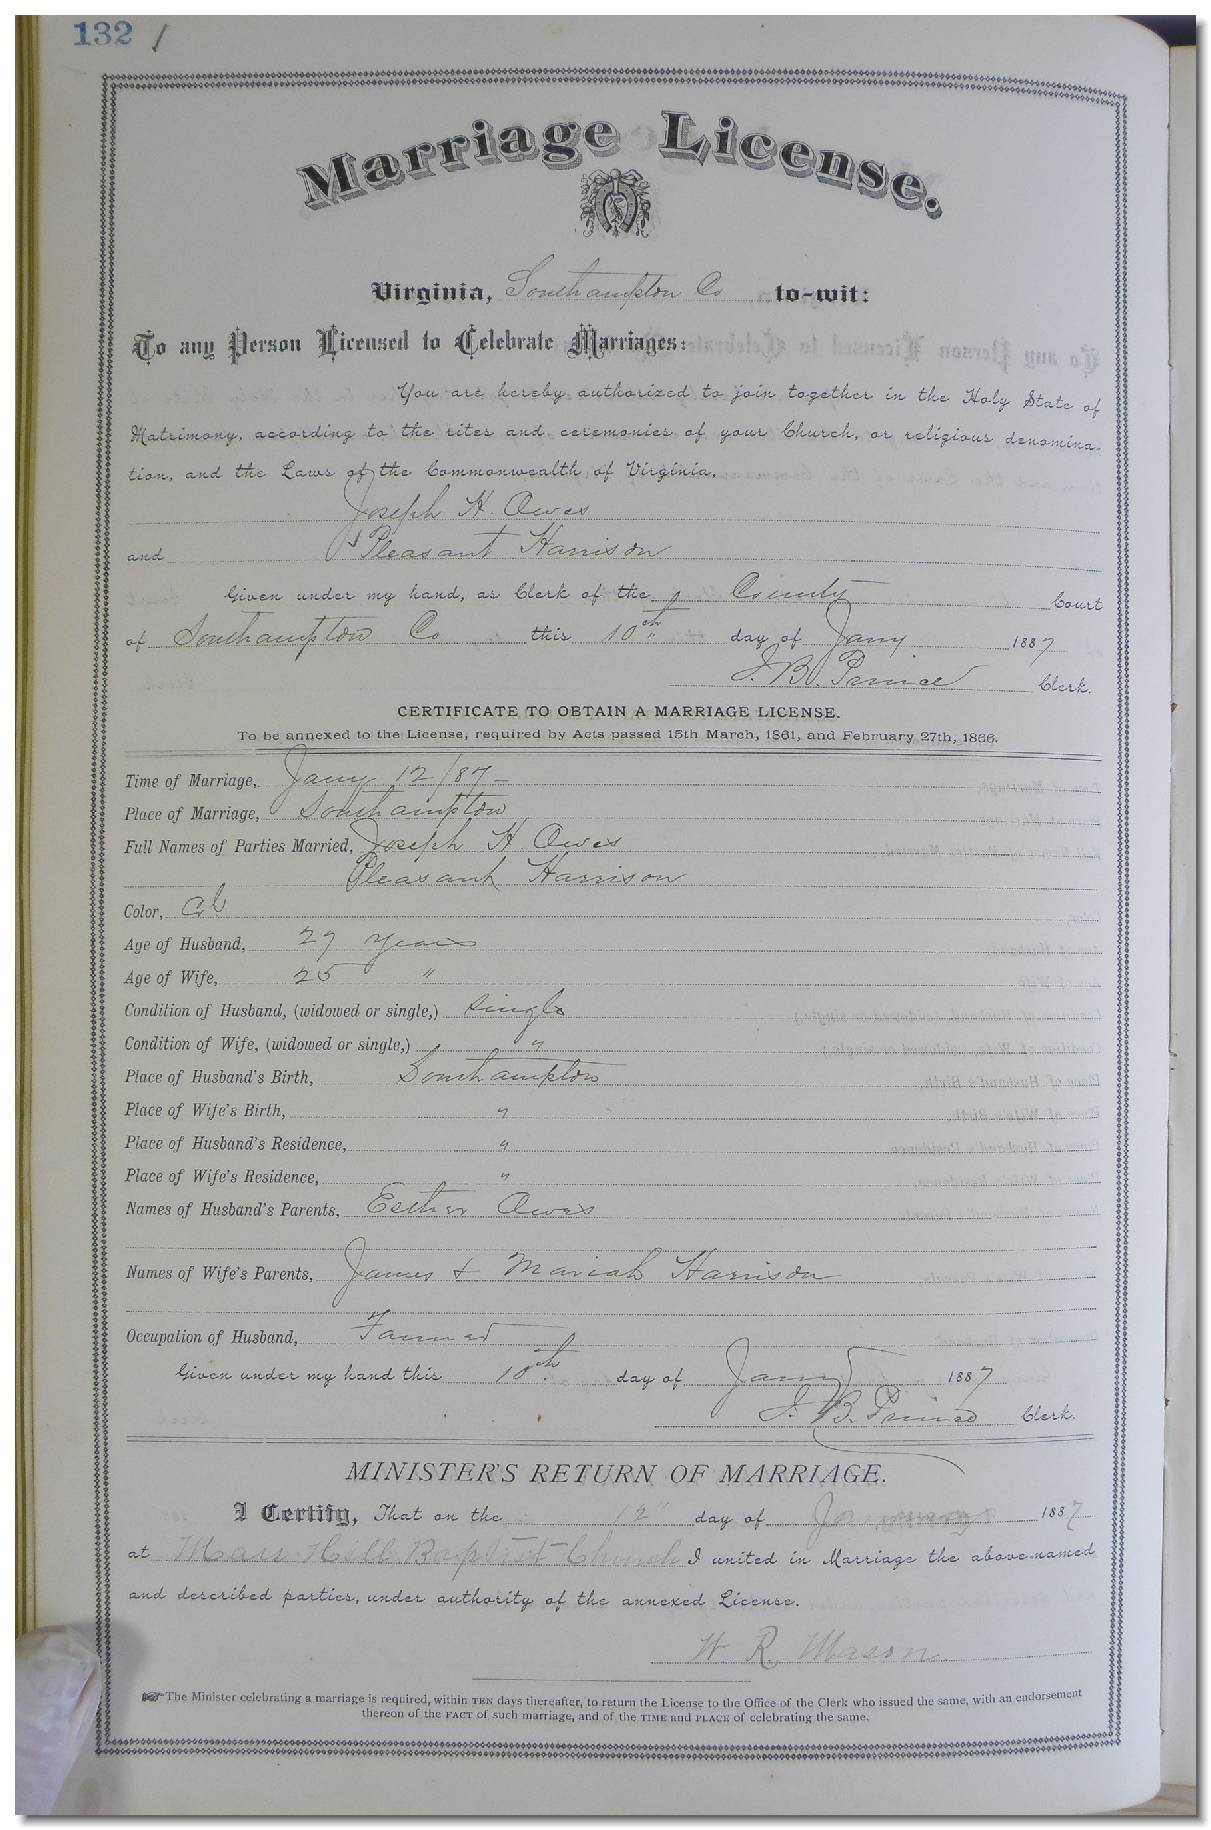 132 /
Marriage License.
Virginia, Southampton Co to-wit:
To any Person Licensed to Celebrate Marriages:
You are hereby authorized to join together in the Holy State of
Matrimony, according to the rites and ceremonies of your Church, or religious denomina-
tion, and the Laws of the Commonwealth of Virginia,
Joseph H. Owes
and Pleasant Harrison
Given under my hand, as Clerk of the County Court
of Southampton Co this 10th day of Jany 1887
J. B. Prince Clerk.
CERTIFICATE TO OBTAIN A MARRIAGE LICENSE.
To be annexed to the License, required by Acts passed 15th March, 1861, and February 27th, 1866.
Time of Marriage, Jany 12/87-
Place of Marriage, Southampton
Full Names of Parties Married, Joseph H Owes
Pleasant Harrison
Color, Col
Age of Husband, 27 years
Age of Wife, 25 "
Condition of Husband, (widowed or single,) single
Condition of Wife, (widowed or single,) "
Place of Husband's Birth, Southampton
Place of Wife's Birth, "
Place of Husband's Residence, "
Place of Wife's Residence, "
Names of Husband's Parents, Esther Owes
Names of Wife's Parents, James & Mariah Harrison
Occupation of Husband, Farmer
Given under my hand this 10th day of Jany 1887
J. B. Prince Clerk.
MINISTER'S RETURN OF MARRIAGE.
I Certify, That on the 12" day of January 1887
at Hill Baptist Church I united in Marriage the above-named
and described parties, under authority of the annexed License.
W R. Mason
The Minister celebrating a marriage is required, within TEN days thereafter, to return the License to the Office of the Clerk who issued the same, with an endorsement
thereon of the FACT of such marriage, and of the TIME and PLACE of celebrating the same.